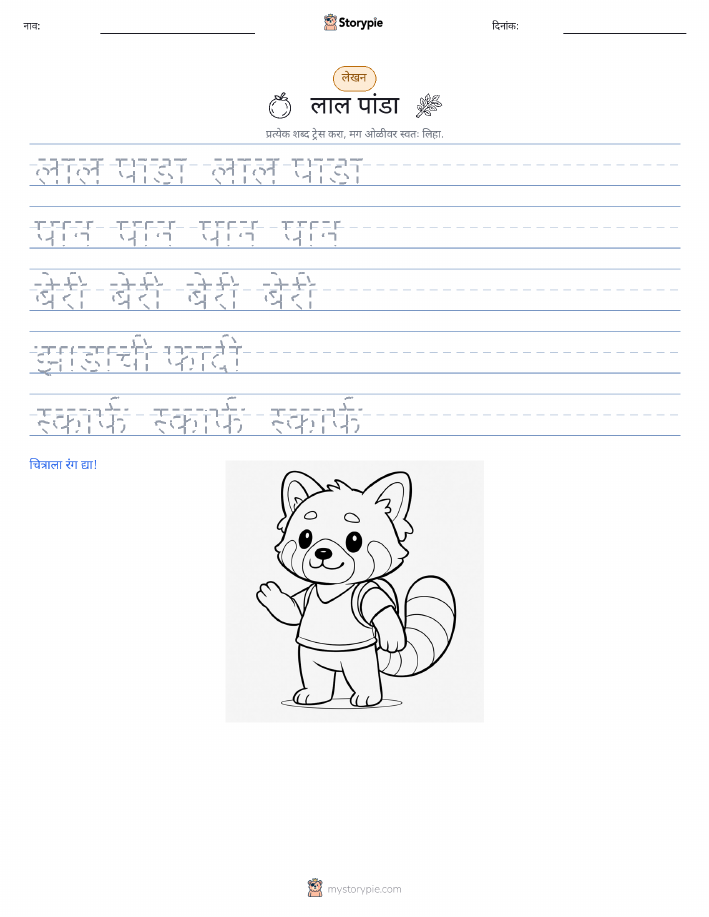 नाव:
Storypie
दिनांक:
लेखन
लाल पांडा
प्रत्येक शब्द ट्रेस करा, मग ओळीवर स्वतः लिहा.
लाल पाडा लाल पाडा
पान पान पान पान
बेरी बेरी बेरी बेरी
झाडाची फादी
स्कार्फ स्कार्फ स्कार्फ
चित्राला रंग द्या!
mystorypie.com